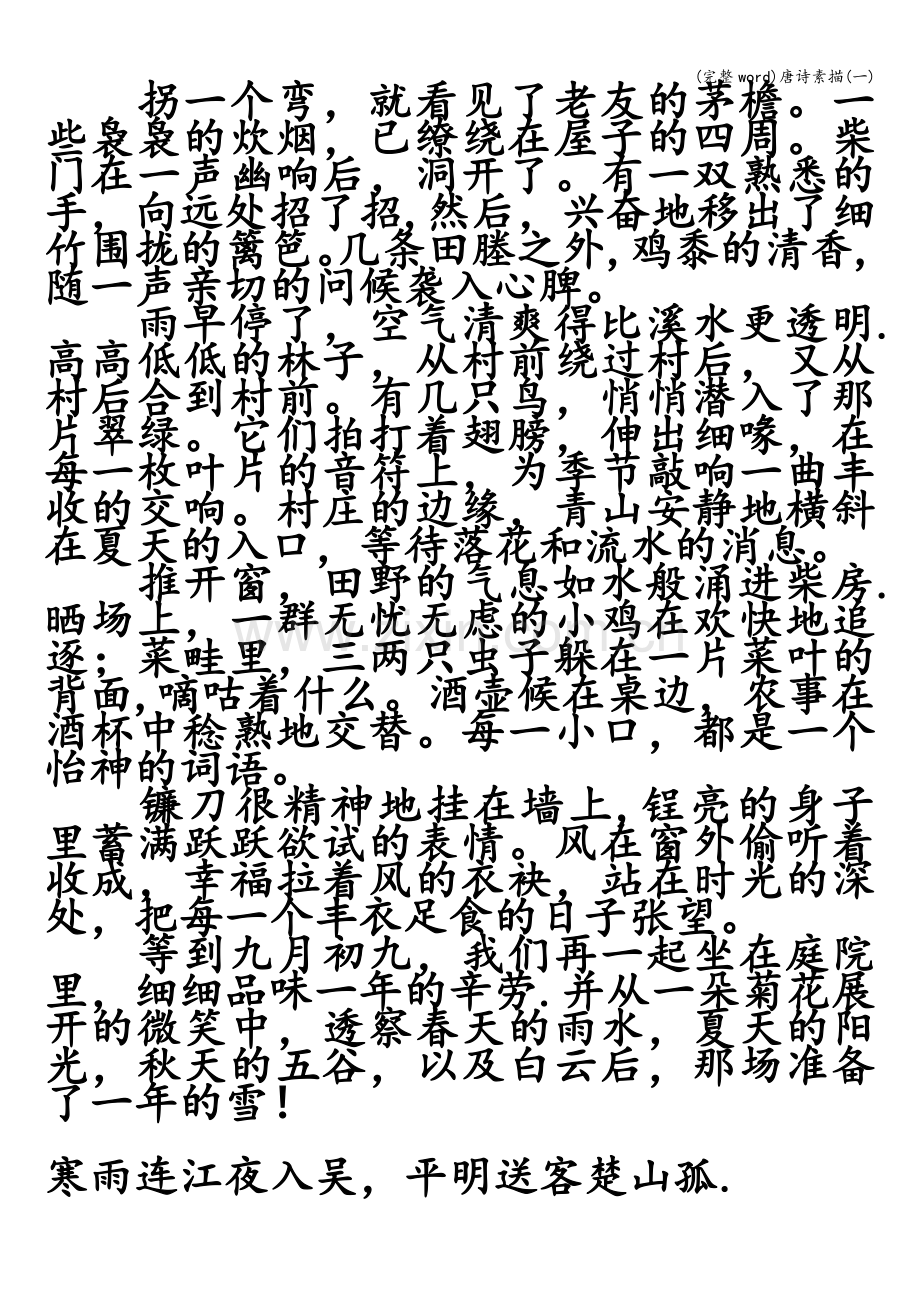 (完整word)唐诗素描(一)
拐一个弯，就看见了老友的茅檐。一
些袅袅的炊烟，已缭绕在屋子的四周。柴
门在一声幽响后，洞开了。有一双熟悉的
手，向远处招了招,然后，兴奋地移出了细
竹围拢的篱笆。几条田塍之外,鸡黍的清香，
随一声亲切的问候袭入心脾。
雨早停了，空气清爽得比溪水更透明.
高高低低的林子，从村前绕过村后，又从
村后合到村前。有几只鸟，悄悄潜入了那
片翠绿。它们拍打着翅膀，伸出细喙，在
每一枚叶片的音符上，为季节敲响一曲丰
收的交响。村庄的边缘，青山安静地横斜
在夏天的入口，等待落花和流水的消息。
推开窗，田野的气息如水般涌进柴房.
晒场上，一群无忧无虑的小鸡在欢快地追
逐；菜畦里，三两只虫子躲在一片菜叶的
背面,嘀咕着什么。酒壶候在桌边，农事在
酒杯中稔熟地交替。每一小口，都是一个
怡神的词语。
镰刀很精神地挂在墙上,锃亮的身子
里蓄满跃跃欲试的表情。风在窗外偷听着
收成，幸福拉着风的衣袂，站在时光的深
处，把每一个丰衣足食的日子张望。
等到九月初九，我们再一起坐在庭院
里，细细品味一年的辛劳.并从一朵菊花展
开的微笑中，透察春天的雨水，夏天的阳
光，秋天的五谷，以及白云后，那场准备
了一年的雪！
寒雨连江夜入吴，平明送客楚山孤.
www.zixin.com.cn